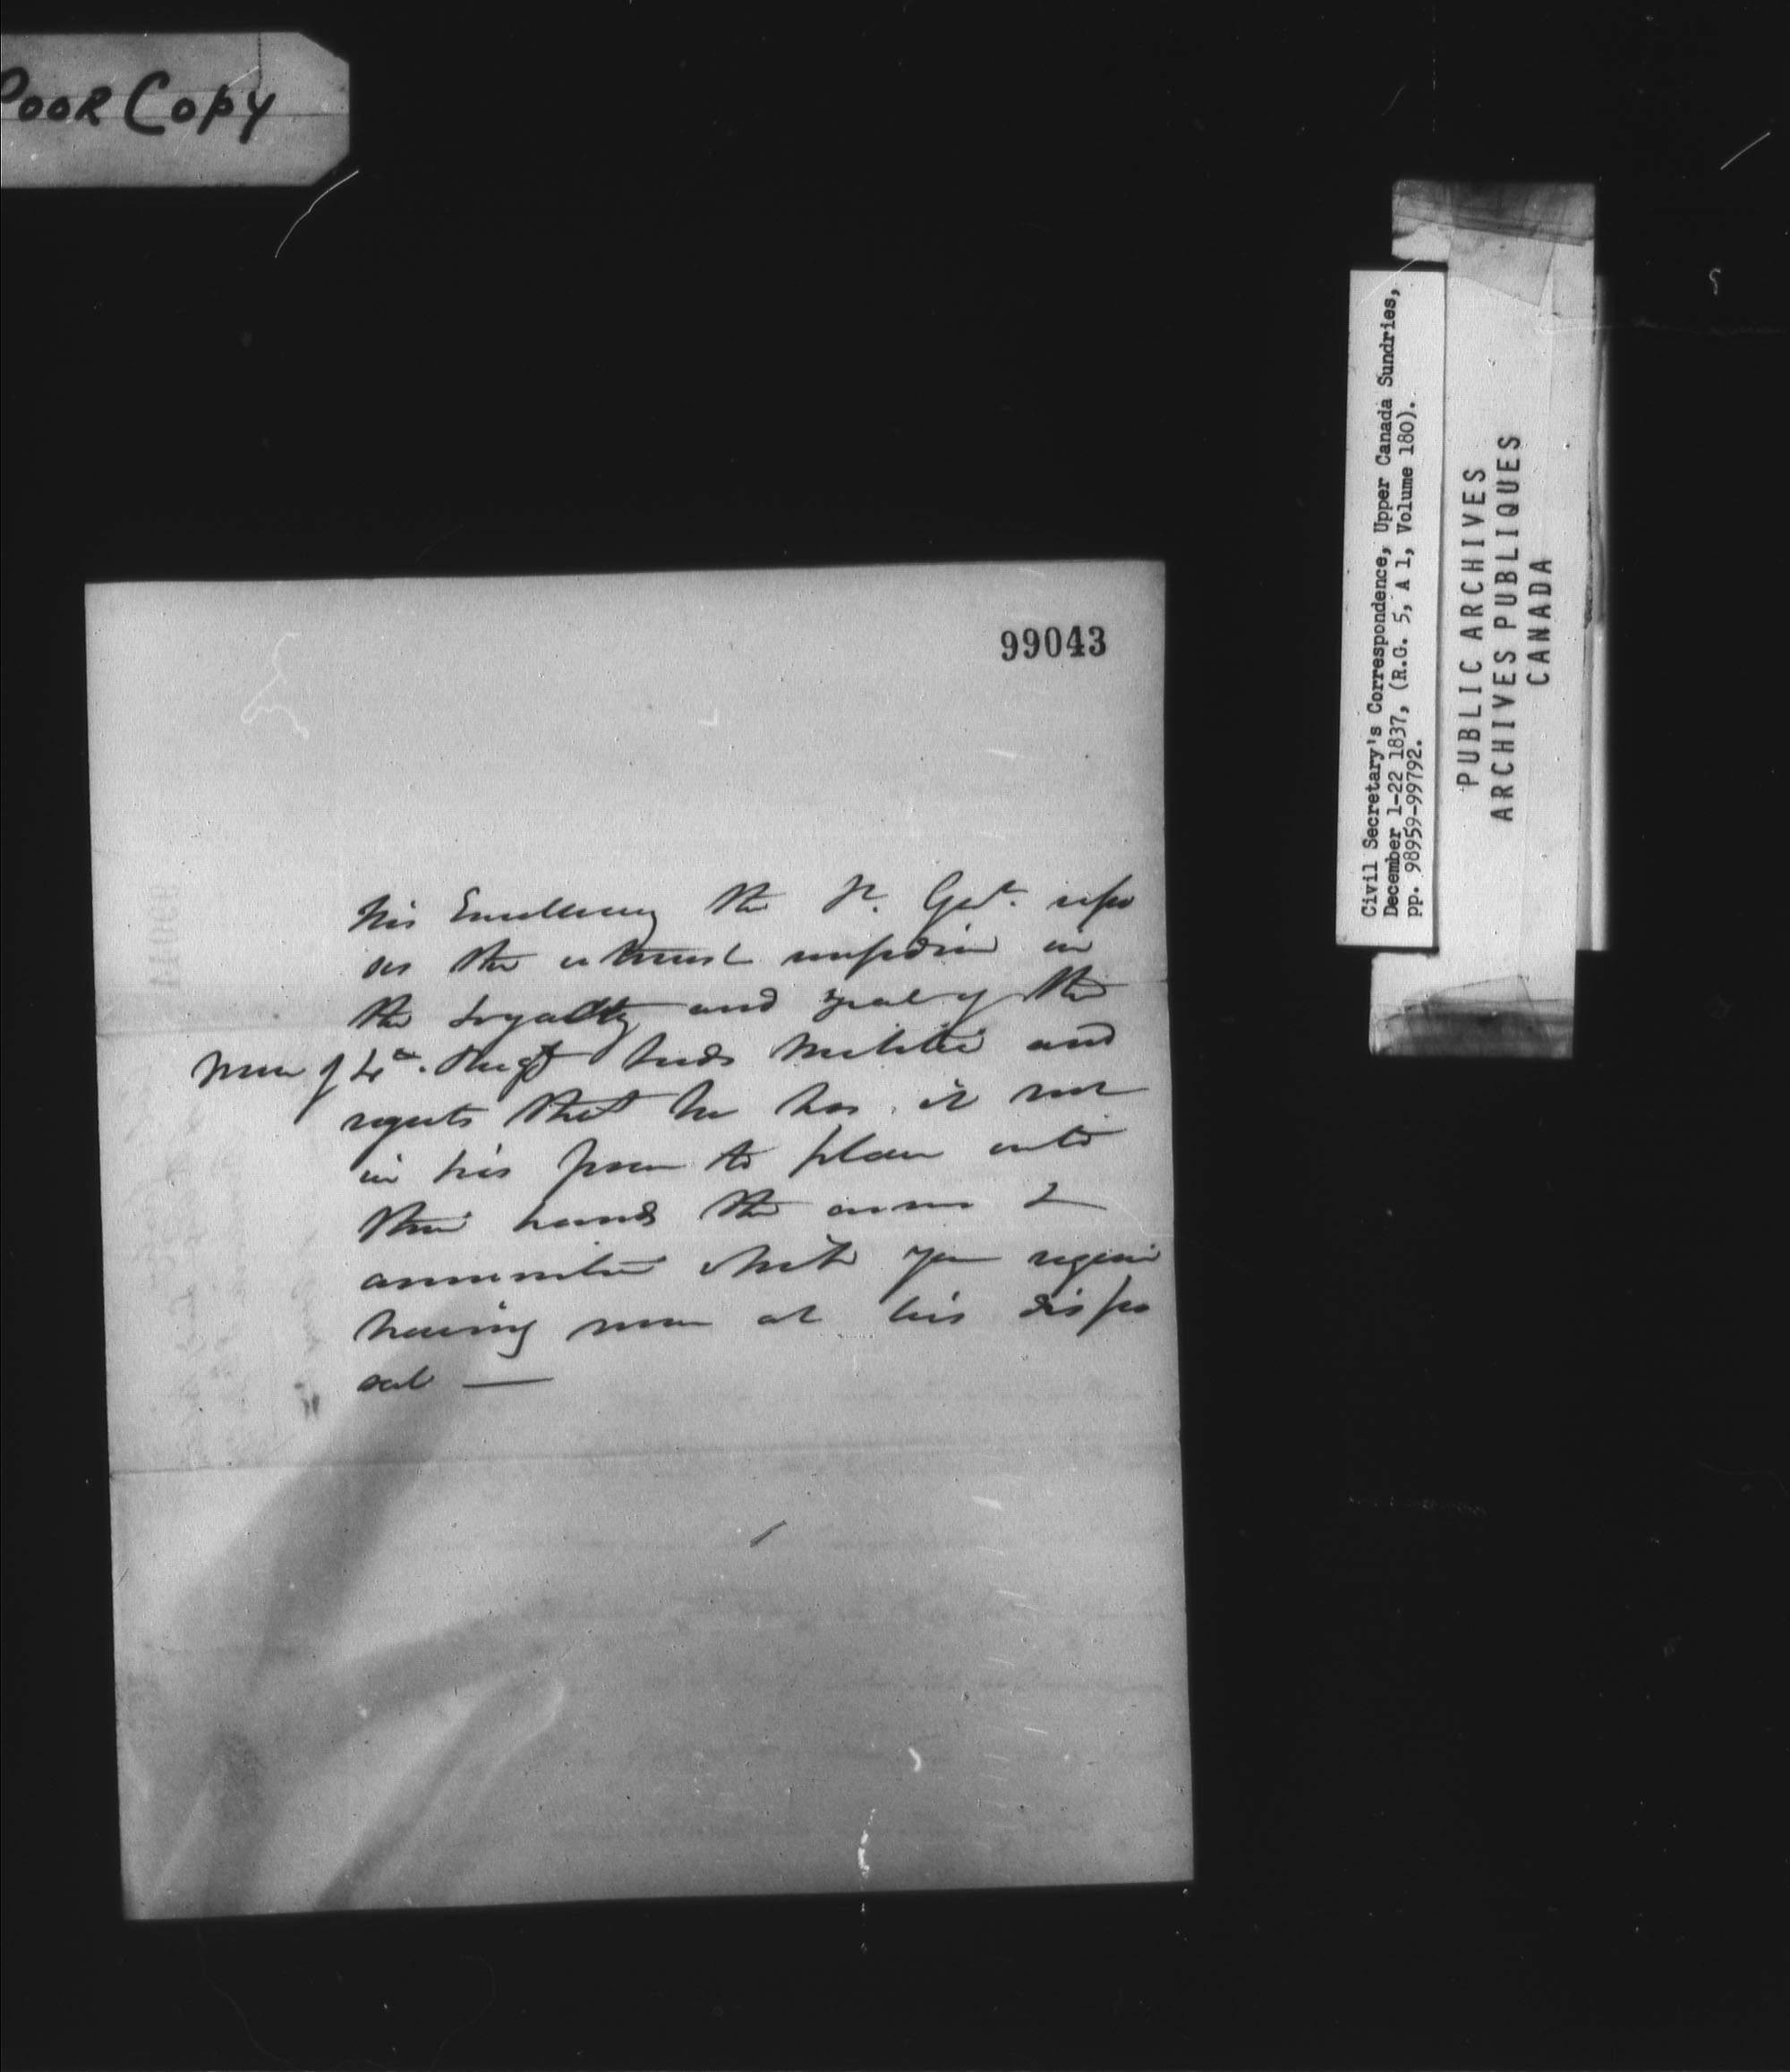 Poor Copy
99043
His Excellency the Lt. Govr. repo
ses the utmost confidence in
the Loyalty and zeal of the
men of 4th. Regt Leeds Militia and
regrets that he has it not
in his power to place into
their hands the arms &
ammunition which you require
having none at his dispo
sal —
Civil Secretary's Correspondence, Upper Canada Sundries,
December 1-22 1837, (R.G. 5, A 1, Volume 180).
pp. 98959-99792.
PUBLIC ARCHIVES
ARCHIVES PUBLIQUES
CANADA